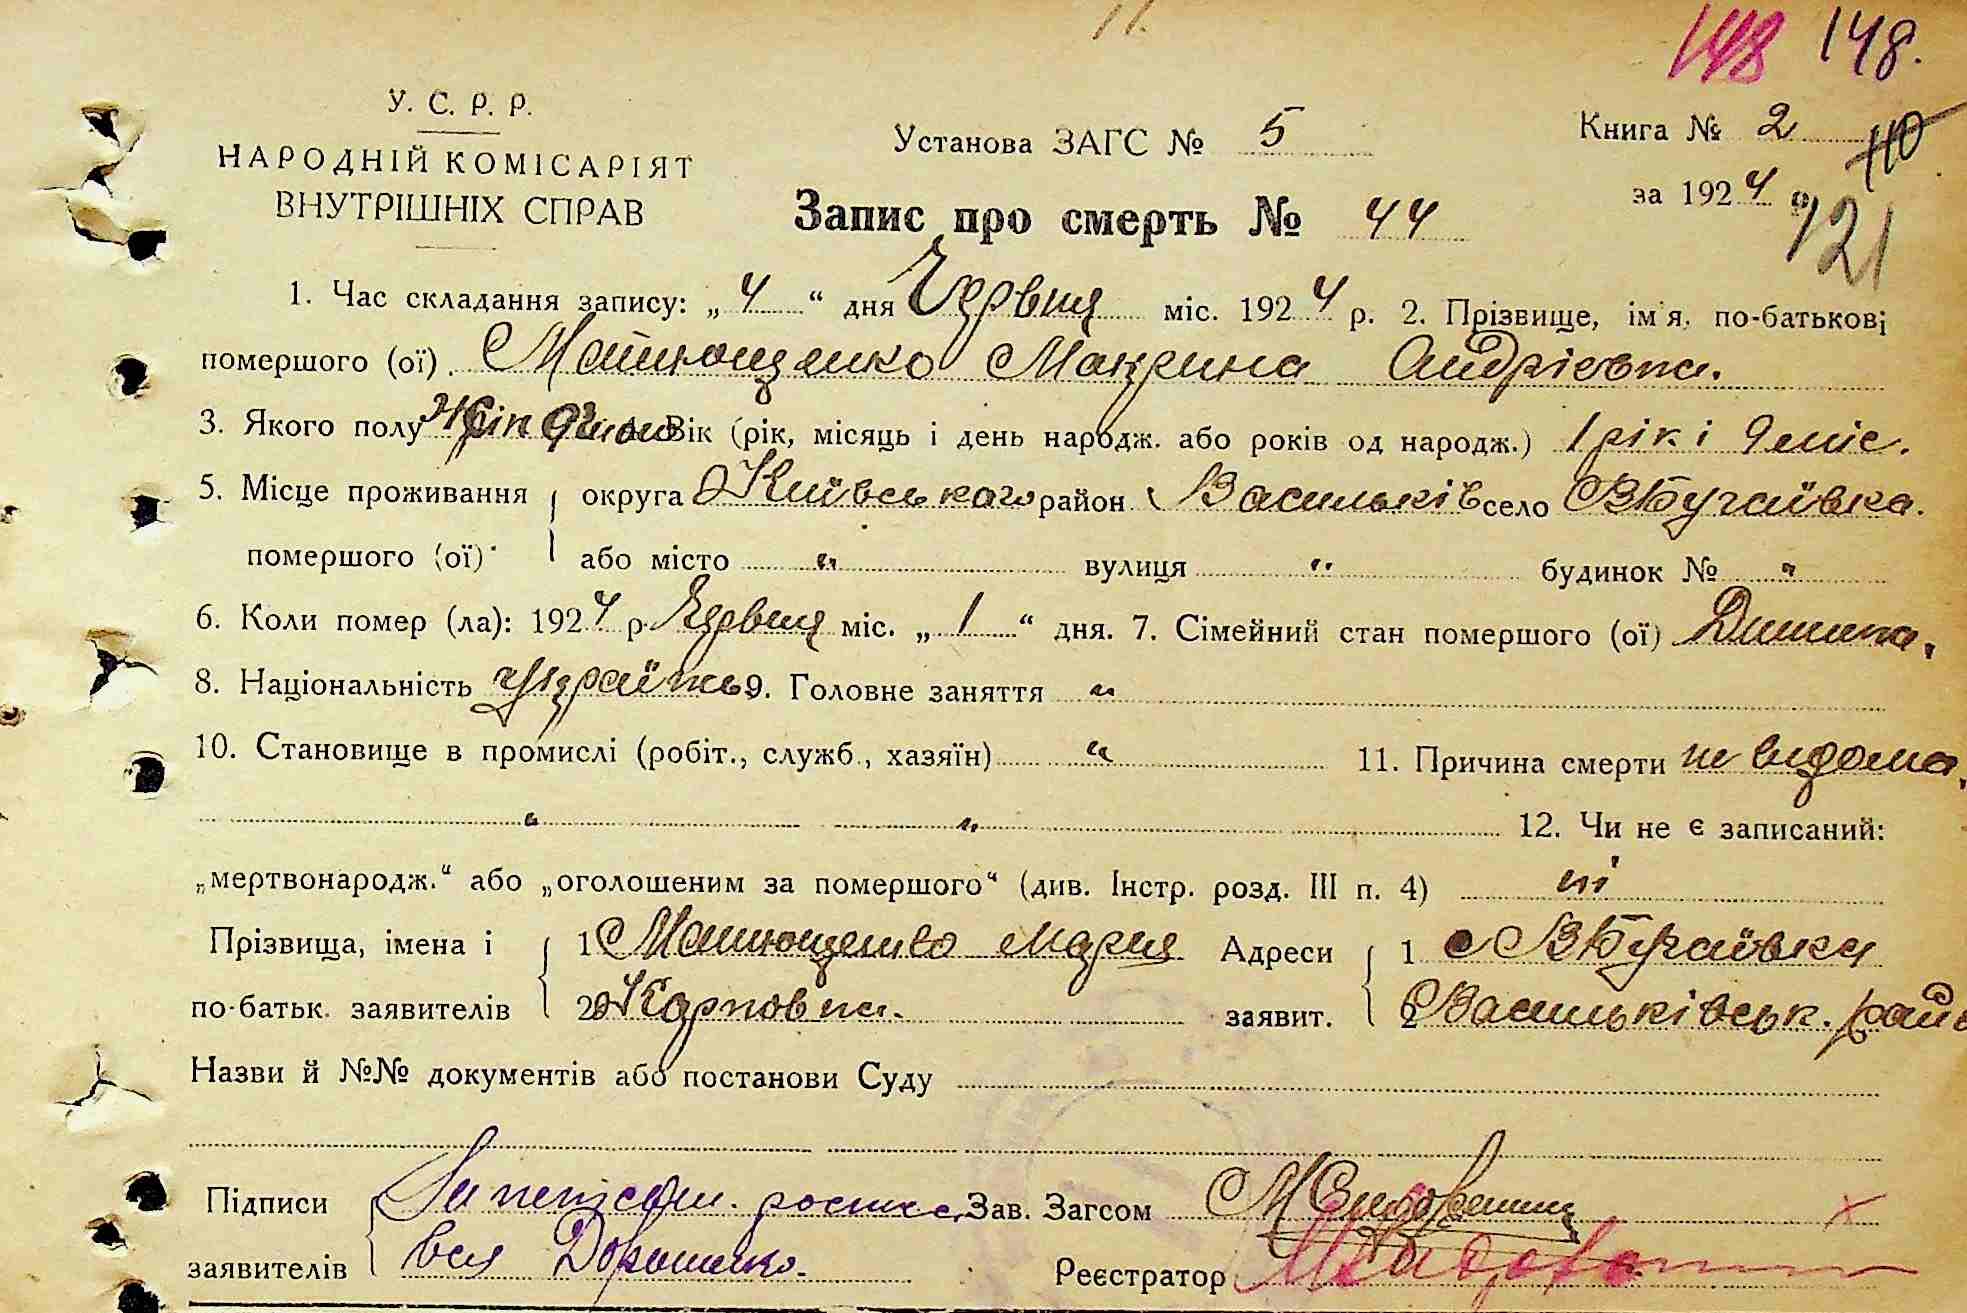 148 148.
У. С. Р. Р.
НАРОДНІЙ КОМІСАРІЯТ
ВНУТРІШНІХ СПРАВ
Установа ЗАГС № 5
Книга № 2 110
за 1924 р. 121
Запис про смерть № 44
1. Час складання запису: „4“ дня Червця міс. 1924 р. 2. Прізвище, ім'я, по-батькові
помершого (ої). Матющенко Макрина Андрієвна.
3. Якого полу Жін 4. Вік (рік, місяць і день народж. або років од народж.) 1 рік і 9 міс.
5. Місце проживання округа Київського район Васильків село ВБугаївка.
помершого (ої) або місто " вулиця " будинок № "
6. Коли помер (ла): 1924 р. Червця міс. „1“ дня. 7. Сімейний стан помершого (ої) Дитина.
8. Національність 9. Головне заняття "
10. Становище в промислі (робіт., служб., хазяїн) " 11. Причина смерти не відома.
" " 12. Чи не є записаний:
„мертвонародж.“ або „оголошеним за помершого“ (див. Інстр. розд. III п. 4) ні
Прізвища, імена і 1 Матющенко Мария Адреси 1 с ВБугаївка
по-батьк. заявителів 2 Карповна. заявит. 2 Васильківськ. рай
Назви й №№ документів або постанови Суду
Підписи росписа Зав. Загсом
заявителів вся Дорошенко. Реєстратор